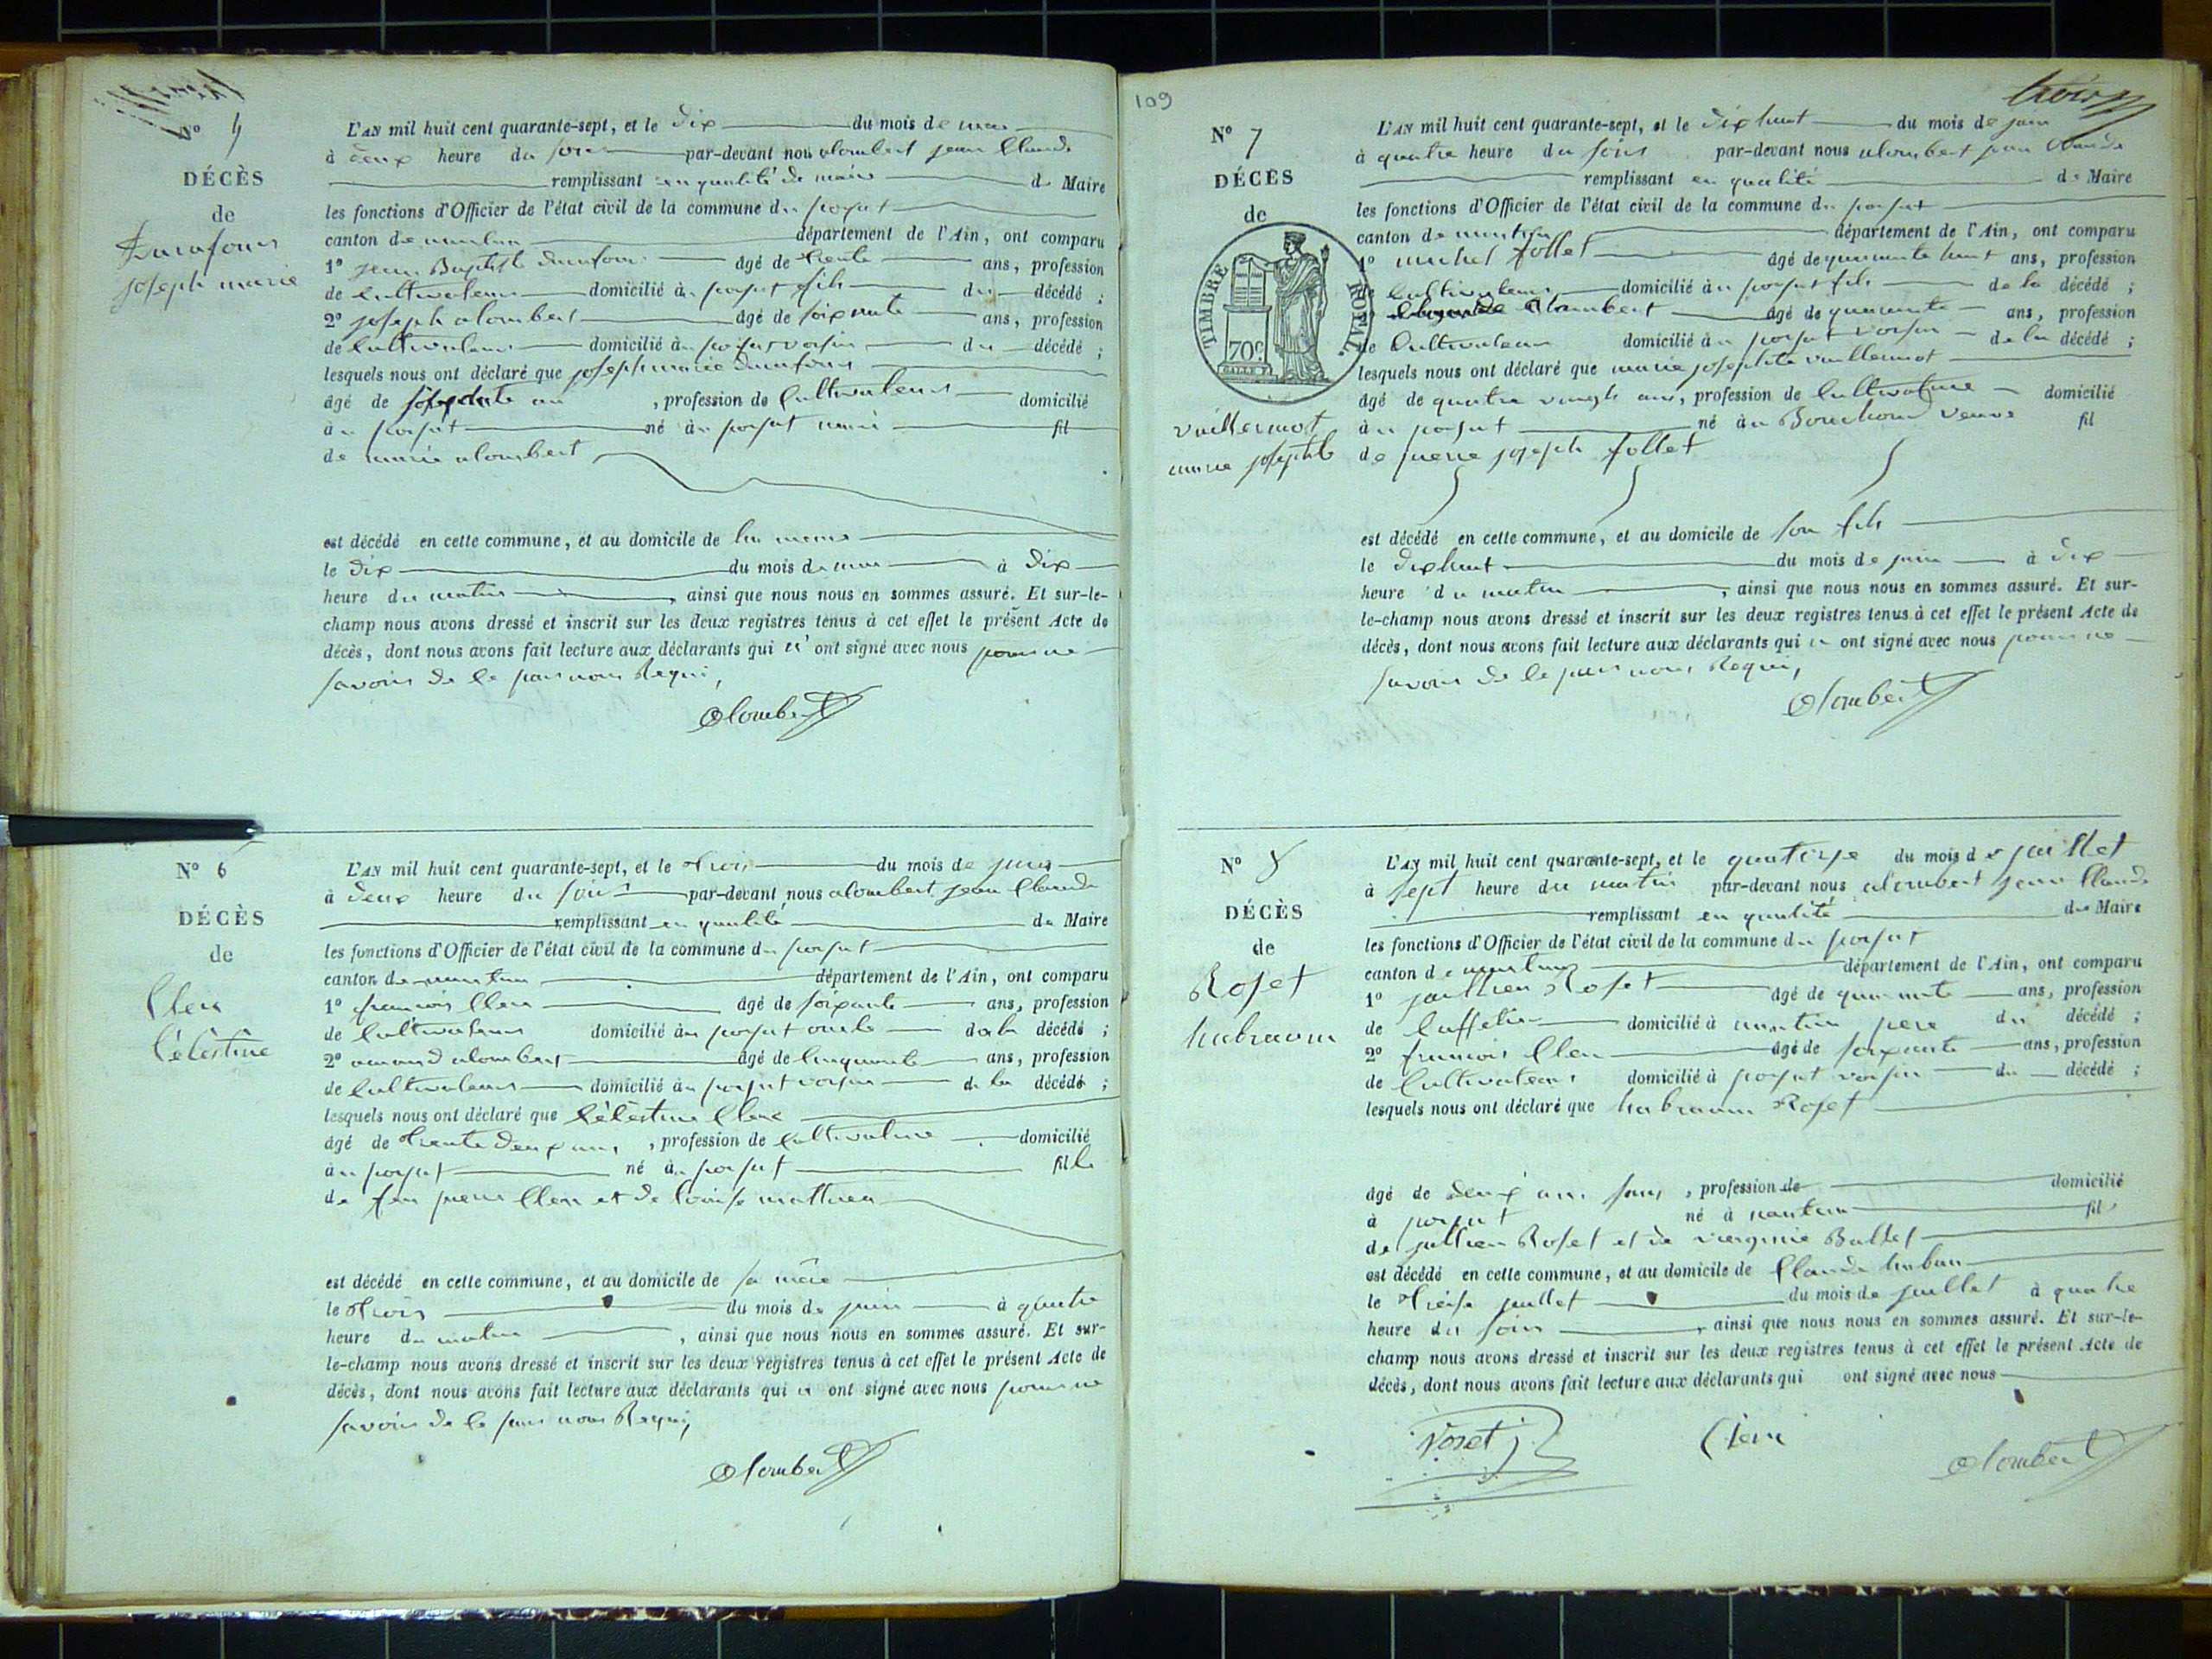 N° 4
DÉCÈS
de
joseph marie
L'AN mil huit cent quarante-sept, et le dix du mois de mai
à deux heure du soir par-devant nous alombert jean Claude
remplissant en qualité de maire de Maire
les fonctions d'Officier de l'état civil de la commune du
canton de département de l'Ain, ont comparu
1° jean Baptiste agé de trente ans, profession
de Cultivateur domicilié au fils du décédé ;
2° joseph alombert agé de soixante ans, profession
de Cultivateur domicilié au voisin du décédé ;
lesquels nous ont déclaré que joseph marie
âgé de , profession de Cultivateur domicilié
au né au mari fil
de marie alombert
est décédé en cette commune, et au domicile de lui meme
le dix du mois de mai à dix
heure du matin , ainsi que nous nous en sommes assuré. Et sur-le-
champ nous avons dressé et inscrit sur les deux registres tenus à cet effet le présent Acte de
décès, dont nous avons fait lecture aux déclarants qui n' ont signé avec nous pour ne
savoir de ce par nous Requi,
alombert
N° 6
DÉCÈS
de
Clerc
Célèstine
L'AN mil huit cent quarante-sept, et le trois du mois de juin
à deux heure du soir par-devant nous alombert jean Claude
remplissant en qualité de Maire
les fonctions d'Officier de l'état civil de la commune du
canton de département de l'Ain, ont comparu
1° francois Clerc agé de soixante ans, profession
de Cultivateur domicilié au oncle de la décédé ;
2° amand alombert agé de Cinquante ans, profession
de Cultivateur domicilié au voisin de la décédé ;
lesquels nous ont déclaré que Célèstine Clerc
âgé de trente deux ans , profession de Cultivatrice domicilié
au né au fille
de feu pierre Clerc et de Louise mathieu
est décédé en cette commune, et au domicile de sa mère
le trois du mois de juin à quatre
heure du matin , ainsi que nous nous en sommes assuré. Et sur-
le-champ nous avons dressé et inscrit sur les deux registres tenus à cet effet le présent Acte de
décès, dont nous avons fait lecture aux déclarants qui n ont signé avec nous pour ne
savoir de ce par nous Requi,
alombert
109
trois
N° 7
DÉCÈS
de
TIMBRE ROYAL
70c
vuillermot
marie josephte
L'AN mil huit cent quarante-sept, et le dix huit du mois de juin
à quatre heure du soir par-devant nous alombert jean Claude
remplissant en qualité de Maire
les fonctions d'Officier de l'état civil de la commune du
canton de département de l'Ain, ont comparu
1° michel follet âgé de quarante huit ans, profession
de Cultivateur domicilié au fils de la décédé ;
alombert âgé de quarante ans, profession
de Cultivateur domicilié au voisin de la décédé ;
lesquels nous ont déclaré que marie josephte vuillermot
âgé de quatre vingts ans, profession de Cultivatrice domicilié
au né au Bouchoux veuve fil
de pierre joseph follet
est décédé en cette commune, et au domicile de son fils
le dix huit du mois de juin à dix
heure du matin , ainsi que nous nous en sommes assuré. Et sur-
le-champ nous avons dressé et inscrit sur les deux registres tenus à cet effet le présent Acte de
décès, dont nous avons fait lecture aux déclarants qui n ont signé avec nous pour ne
savoir de ce par nous Requi,
alombert
N° 8
DÉCÈS
de
Roset
L'AN mil huit cent quarante-sept, et le quatorze du mois de juillet
à sept heure du matin par-devant nous alombert jean Claude
remplissant en qualité de Maire
les fonctions d'Officier de l'état civil de la commune du
canton de département de l'Ain, ont comparu
1° Roset âgé de quarante ans, profession
de domicilié à père du décédé ;
2° francois Clerc âgé de soixante ans, profession
de Cultivateur domicilié à voisin du décédé ;
lesquels nous ont déclaré que Roset
âgé de deux ans sans , profession de domicilié
à né à nantua fils
de Roset et de virginie Ballet
est décédé en cette commune, et au domicile de Claude
le treise juillet du mois de juillet à quatre
heure du soir , ainsi que nous nous en sommes assuré. Et sur-le-
champ nous avons dressé et inscrit sur les deux registres tenus à cet effet le présent Acte de
décès, dont nous avons fait lecture aux déclarants qui ont signé avec nous
alombert